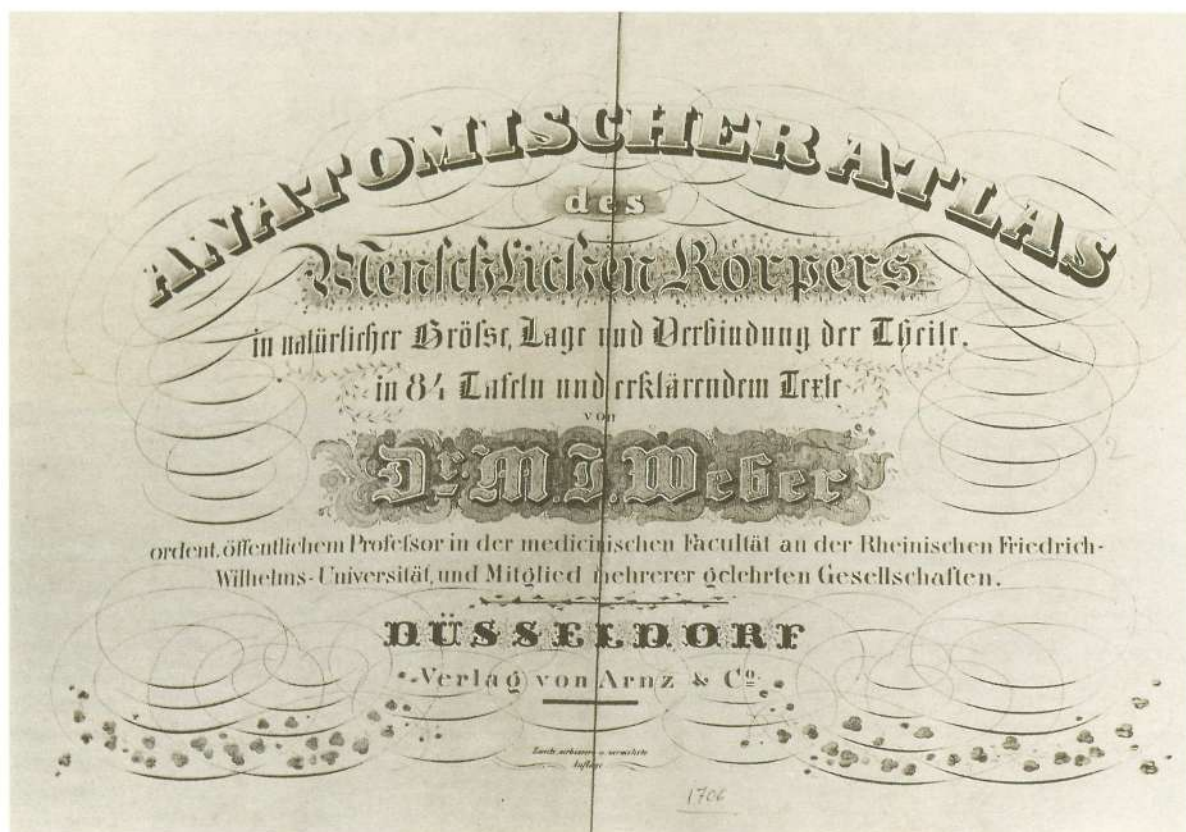 ANATOMISCHER ATLAS
des
Menschlichen Korpers
in natürlicher Gröſse, Lage und Verbindung der Theile.
in 84 Tafeln und erklärendem Texte
von
Dr. M. J. Weber
ordent. öffentlichem Profeſsor in der medicinischen Facultät an der Rheinischen Friedrich-
Wilhelms-Universität, und Mitglied mehrerer gelehrten Gesellschaften.
DÜSSELDORF
Verlag von Arnz & Co.
Zweite, verbesserte u. vermehrte
Auflage
1706
2